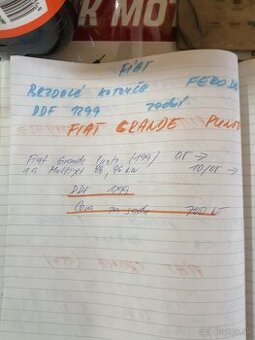 K MOT
FIAT
BRZDOVÉ KOTOUČE FERODO
DDF 1299 zadní
FIAT GRANDE PUNTO
Fiat Grande Punto (199) 05 →
1.9 Multijet 88, 96 kW 10/05 →
DDF 1299
Cena za sadu 700 Kč